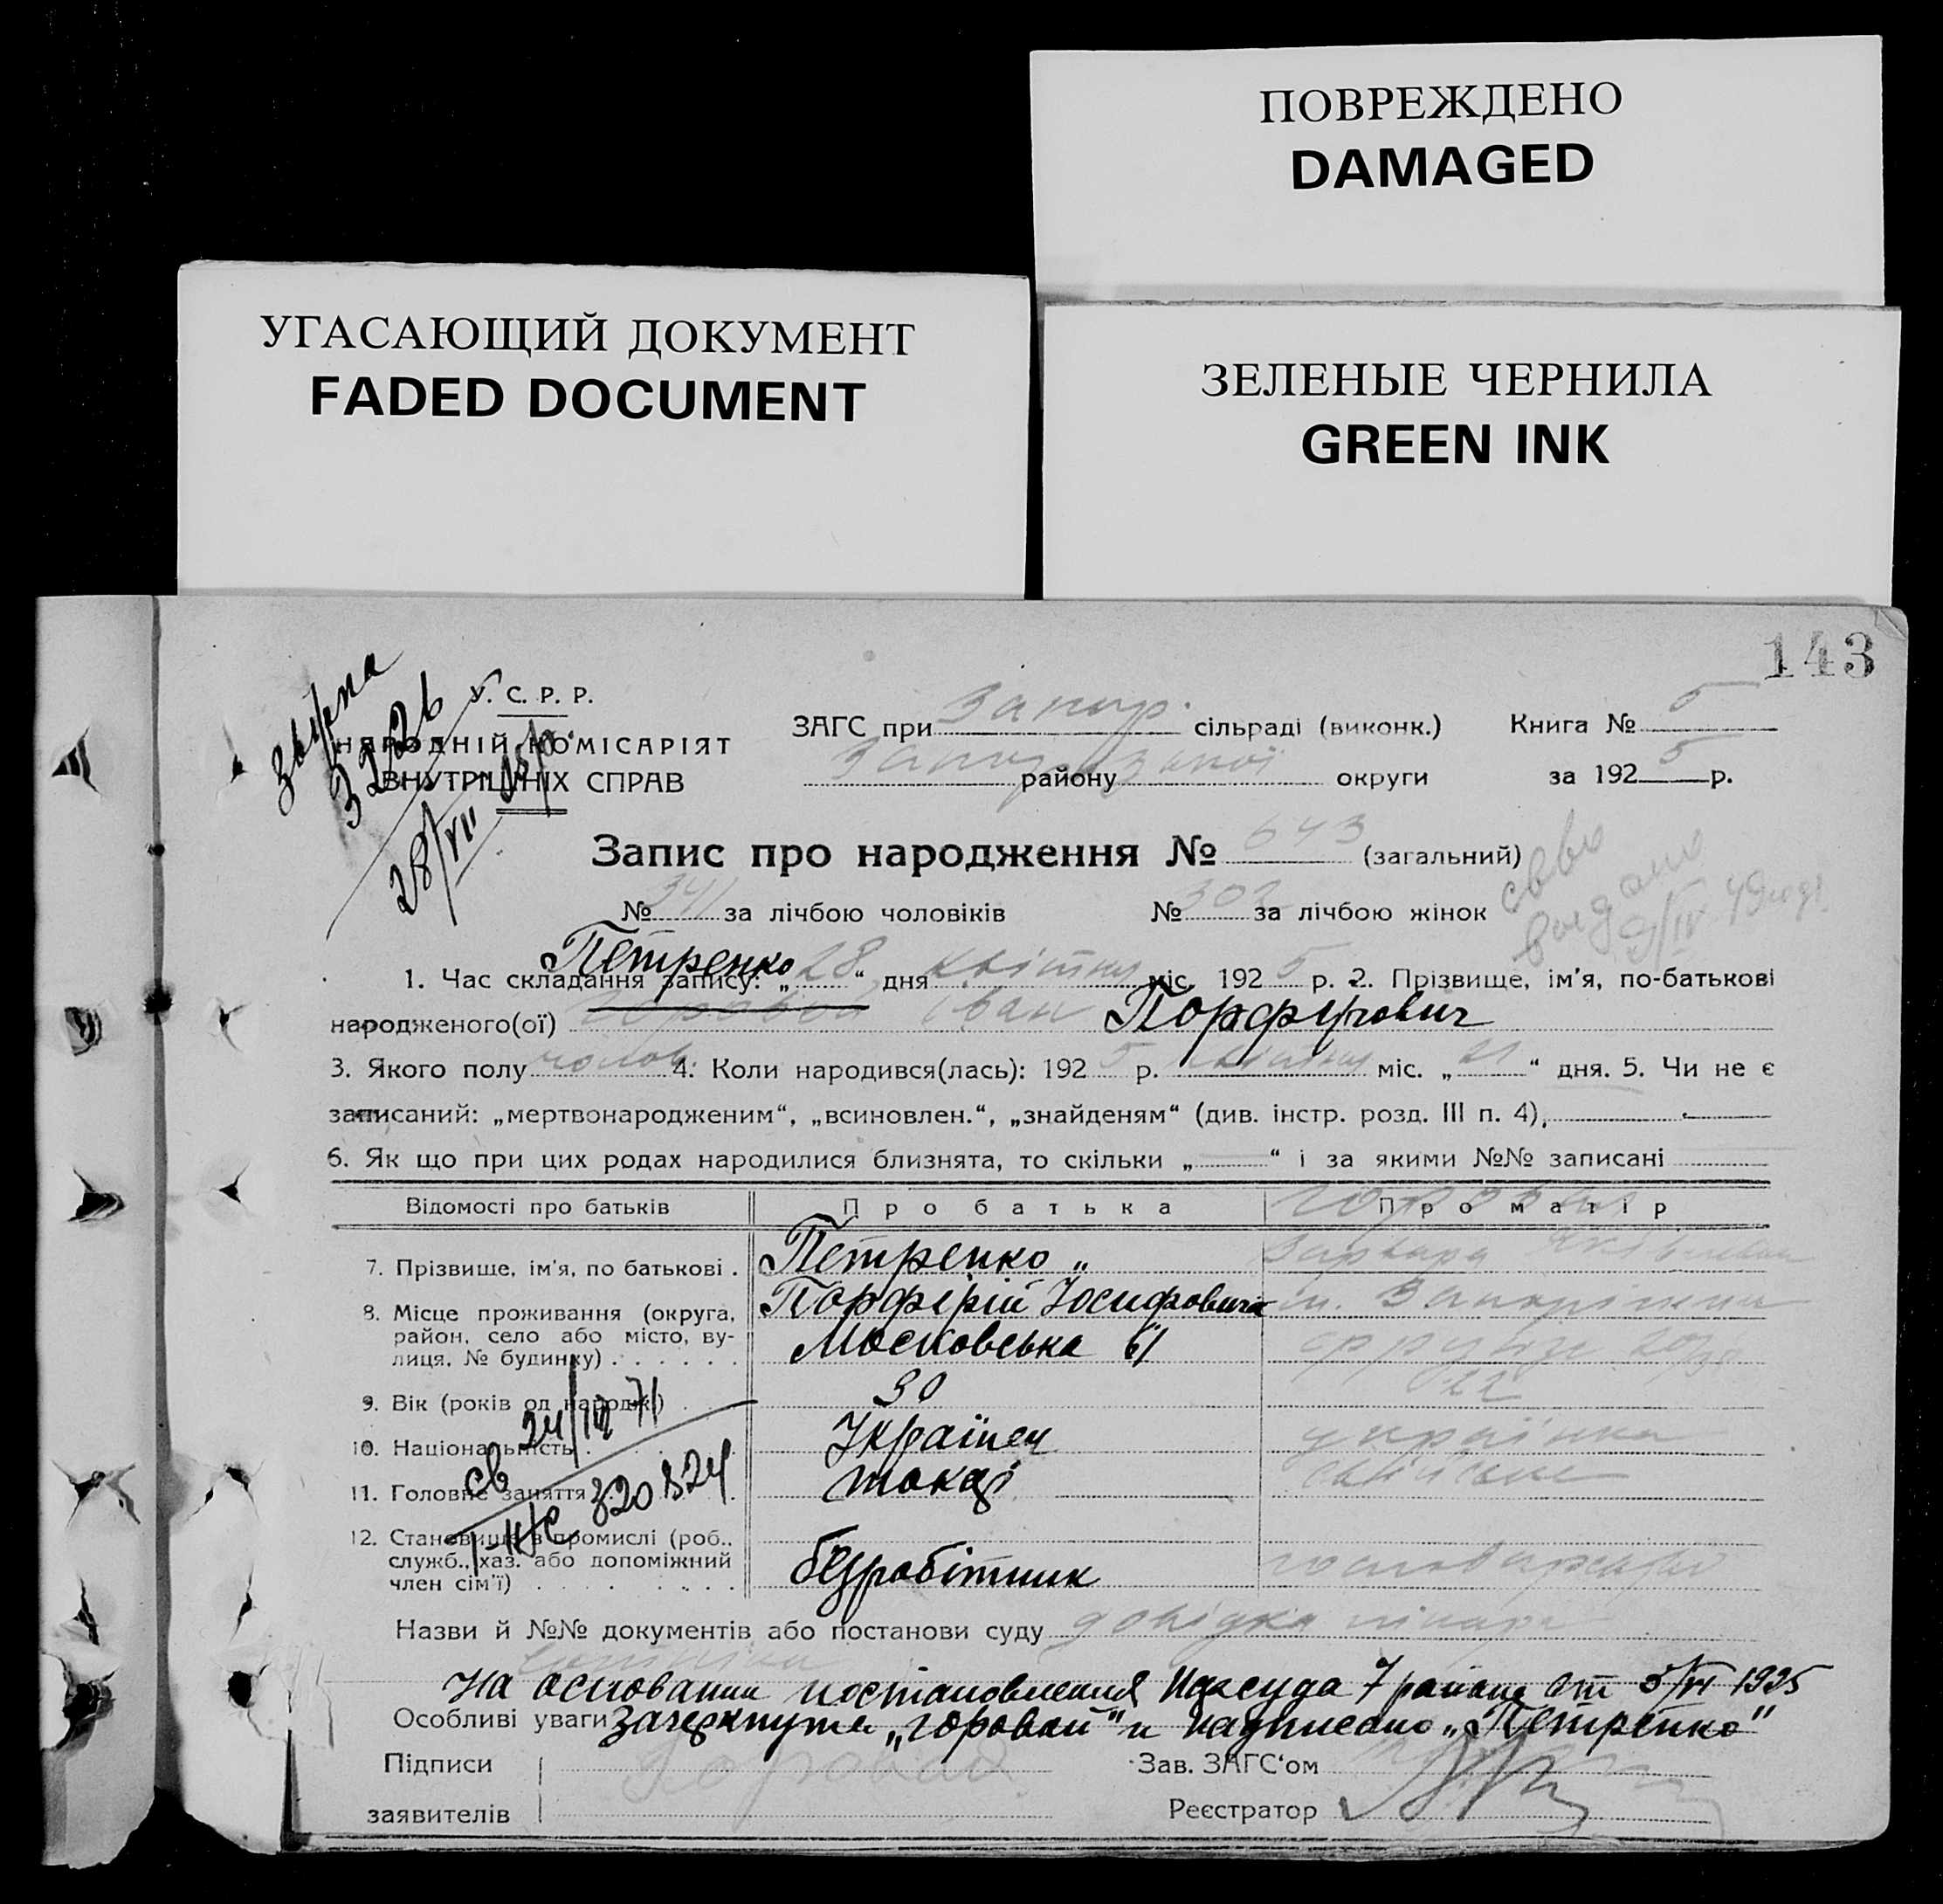 ПОВРЕЖДЕНО
DAMAGED
УГАСАЮЩИЙ ДОКУМЕНТ
FADED DOCUMENT
ЗЕЛЕНЫЕ ЧЕРНИЛА
GREEN INK
143
У. С. Р. Р.
НАРОДНІЙ КОМІСАРІЯТ
ВНУТРІШНІХ СПРАВ
28/VII
ЗАГС при Запор. сільраді (виконк.) Книга № 5
району округи за 1925 р.
Запис про народження № 643 (загальний)
№ 341 за лічбою чоловіків № 302 за лічбою жінок
выдано
9/IV 49
Петренко
1. Час складання запису: „28“ дня квітня міс. 1925 р. 2. Прізвище, ім'я, по-батькові
народженого(ої) Горовой Іван Порфирович
3. Якого полу чолов. 4. Коли народився(лась): 1925 р. квітня міс. „21“ дня. 5. Чи не є
записаний: „мертвонародженим“, „всиновлен.“, „знайденям“ (див. інстр. розд. III п. 4),
6. Як що при цих родах народилися близнята, то скільки „ “ і за якими №№ записані
Відомості про батьків Про батька Про матір
7. Прізвище, ім'я, по батькові . Петренко „ Варвара
8. Місце проживання (округа, Порфірій Йосифович м. Запоріжжя
район, село або місто, ву- Московська 61
лиця, № будинку) . . . . . .
9. Вік (років од народж.) . 30 22
24/III 71
10. Національність . Українец українка
11. Головне заняття токар
св I-ЖС 320824
12. Становище в промислі (роб.,
служб., хаз. або допоміжний безробітник
член сім'ї) . . . . . . .
Назви й №№ документів або постанови суду довідка лікаря
На основании постановления Нарсуда 7 района от 5/VI 1925
Особливі уваги зачеркнуто „Горовой“ и надписано „Петренко“
Підписи Горовая Зав. ЗАГС'ом
заявителів Реєстратор